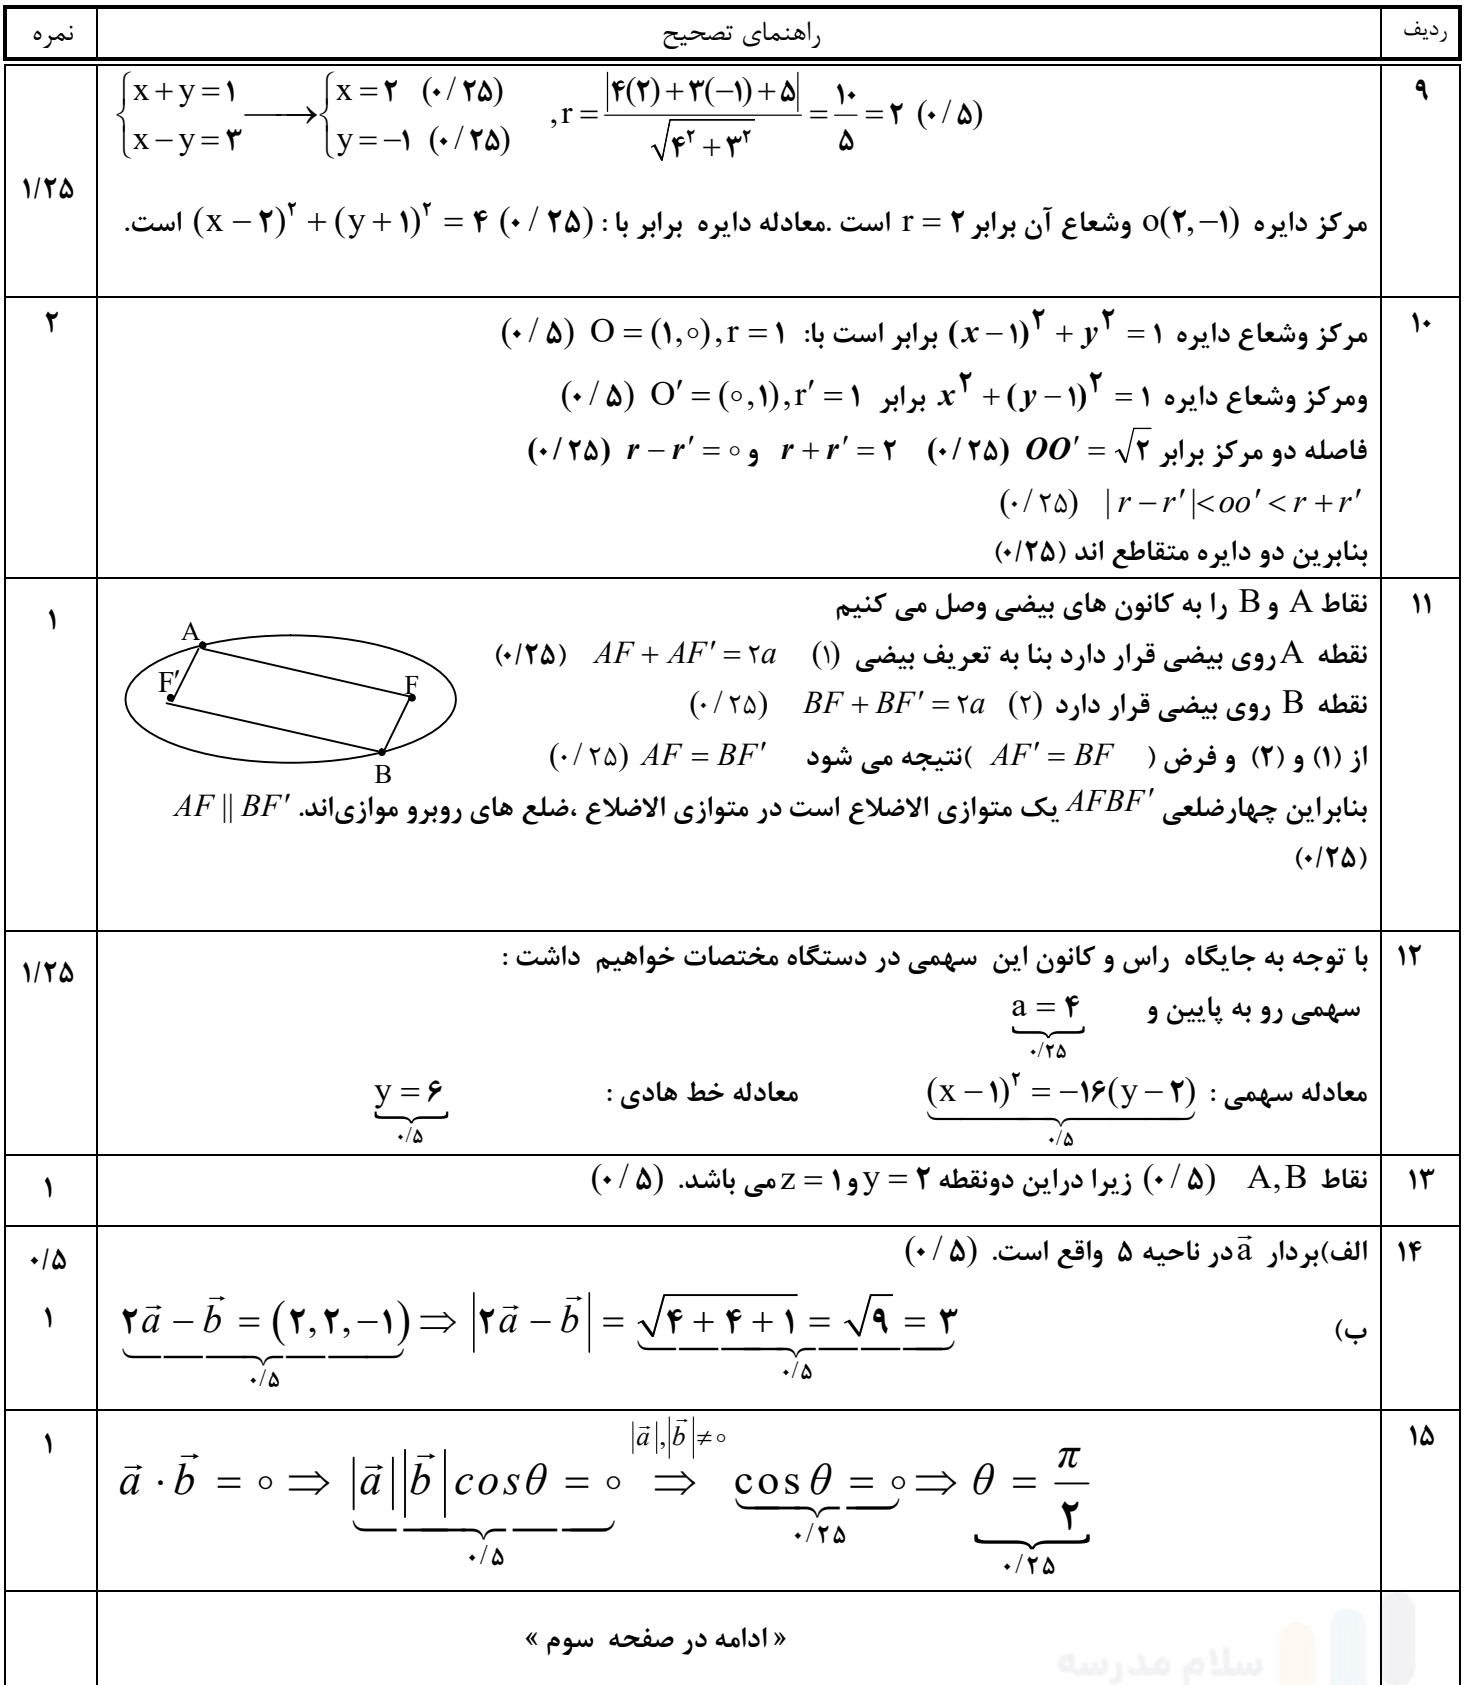 ردیف راهنمای تصحیح نمره
۹ { x + y = ۱ , x − y = ۳ ⟶ { x = ۲ (۰/۲۵) , y = −۱ (۰/۲۵) , r = |۴(۲)+۳(−۱)+۵| / √(۴^۲ + ۳^۲) = ۱۰/۵ = ۲ (۰/۵)
۱/۲۵
مرکز دایره o(۲,−۱) وشعاع آن برابر r = ۲ است .معادله دایره برابر با : (x − ۲)^۲ + (y + ۱)^۲ = ۴ (۰/۲۵) است.
۱۰ مرکز وشعاع دایره (x − ۱)^۲ + y^۲ = ۱ برابر است با: O = (۱,۰), r = ۱ (۰/۵) ۲
ومرکز وشعاع دایره x^۲ + (y − ۱)^۲ = ۱ برابر O′ = (۰,۱), r′ = ۱ (۰/۵)
فاصله دو مرکز برابر OO′ = √۲ (۰/۲۵) r + r′ = ۲ و r − r′ = ۰ (۰/۲۵)
| r − r′ |< oo′ < r + r′ (۰/۲۵)
بنابرین دو دایره متقاطع اند (۰/۲۵)
۱۱ نقاط A و B را به کانون های بیضی وصل می کنیم ۱
نقطه A روی بیضی قرار دارد بنا به تعریف بیضی (۱) AF + AF′ = ۲a (۰/۲۵)
نقطه B روی بیضی قرار دارد (۲) BF + BF′ = ۲a (۰/۲۵)
از (۱) و (۲) و فرض ( AF′ = BF )نتیجه می شود AF = BF′ (۰/۲۵)
بنابراین چهارضلعی AFBF′ یک متوازی الاضلاع است در متوازی الاضلاع ،ضلع های روبرو موازی‌اند. AF || BF′
(۰/۲۵)
A
F′
F
B
۱۲ با توجه به جایگاه راس و کانون این سهمی در دستگاه مختصات خواهیم داشت : ۱/۲۵
سهمی رو به پایین و a = ۴
۰/۲۵
معادله سهمی : (x − ۱)^۲ = −۱۶(y − ۲) معادله خط هادی : y = ۶
۰/۵ ۰/۵
۱۳ نقاط A,B (۰/۵) زیرا دراین دونقطه y = ۲ و z = ۱ می باشد. (۰/۵) ۱
۱۴ الف)بردار a⃗ در ناحیه ۵ واقع است. (۰/۵) ۰/۵
ب) ۲a⃗ − b⃗ = (۲,۲,−۱) ⇒ |۲a⃗ − b⃗| = √(۴ + ۴ + ۱) = √۹ = ۳ ۱
۰/۵ ۰/۵
۱۵ a⃗ · b⃗ = ۰ ⇒ |a⃗||b⃗| cosθ = ۰ ⇒ (|a⃗|,|b⃗| ≠ ۰) cosθ = ۰ ⇒ θ = π/۲ ۱
۰/۵ ۰/۲۵ ۰/۲۵
« ادامه در صفحه سوم »
سلام مدرسه